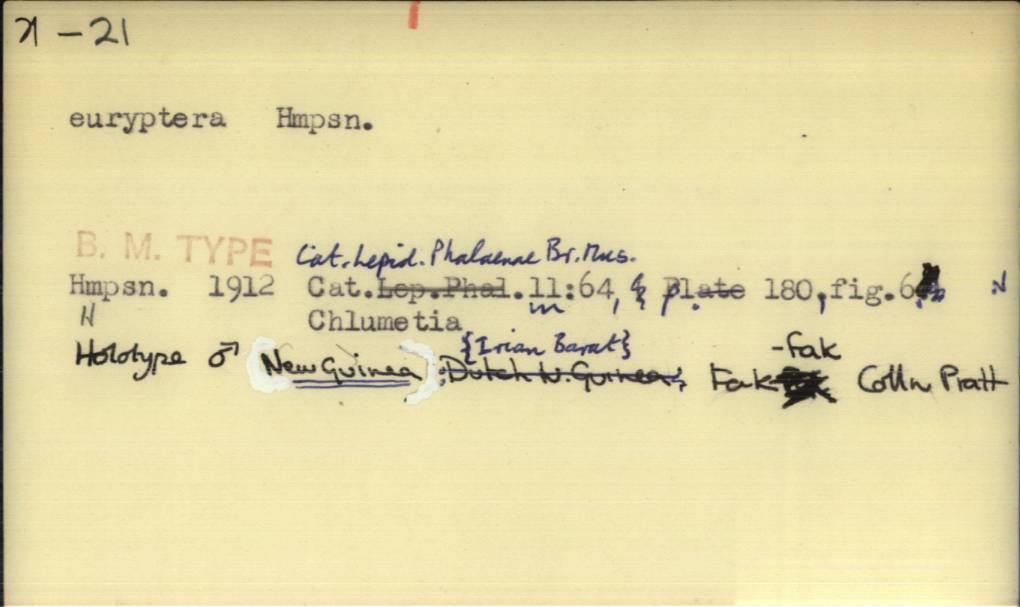 -21
euryptera Hmpsn.
B. M. TYPE Cat. Lepid. Phalaenae Br. Mus.
Hmpsn. 1912 Cat. Lep. Phal. 11:64, & Plate 180, fig. 6 N
N Chlumetia m
{Irian Barat} -Fak
Holotype ♂ (New Guinea) : Dutch N. Guinea; Fak Colln Pratt